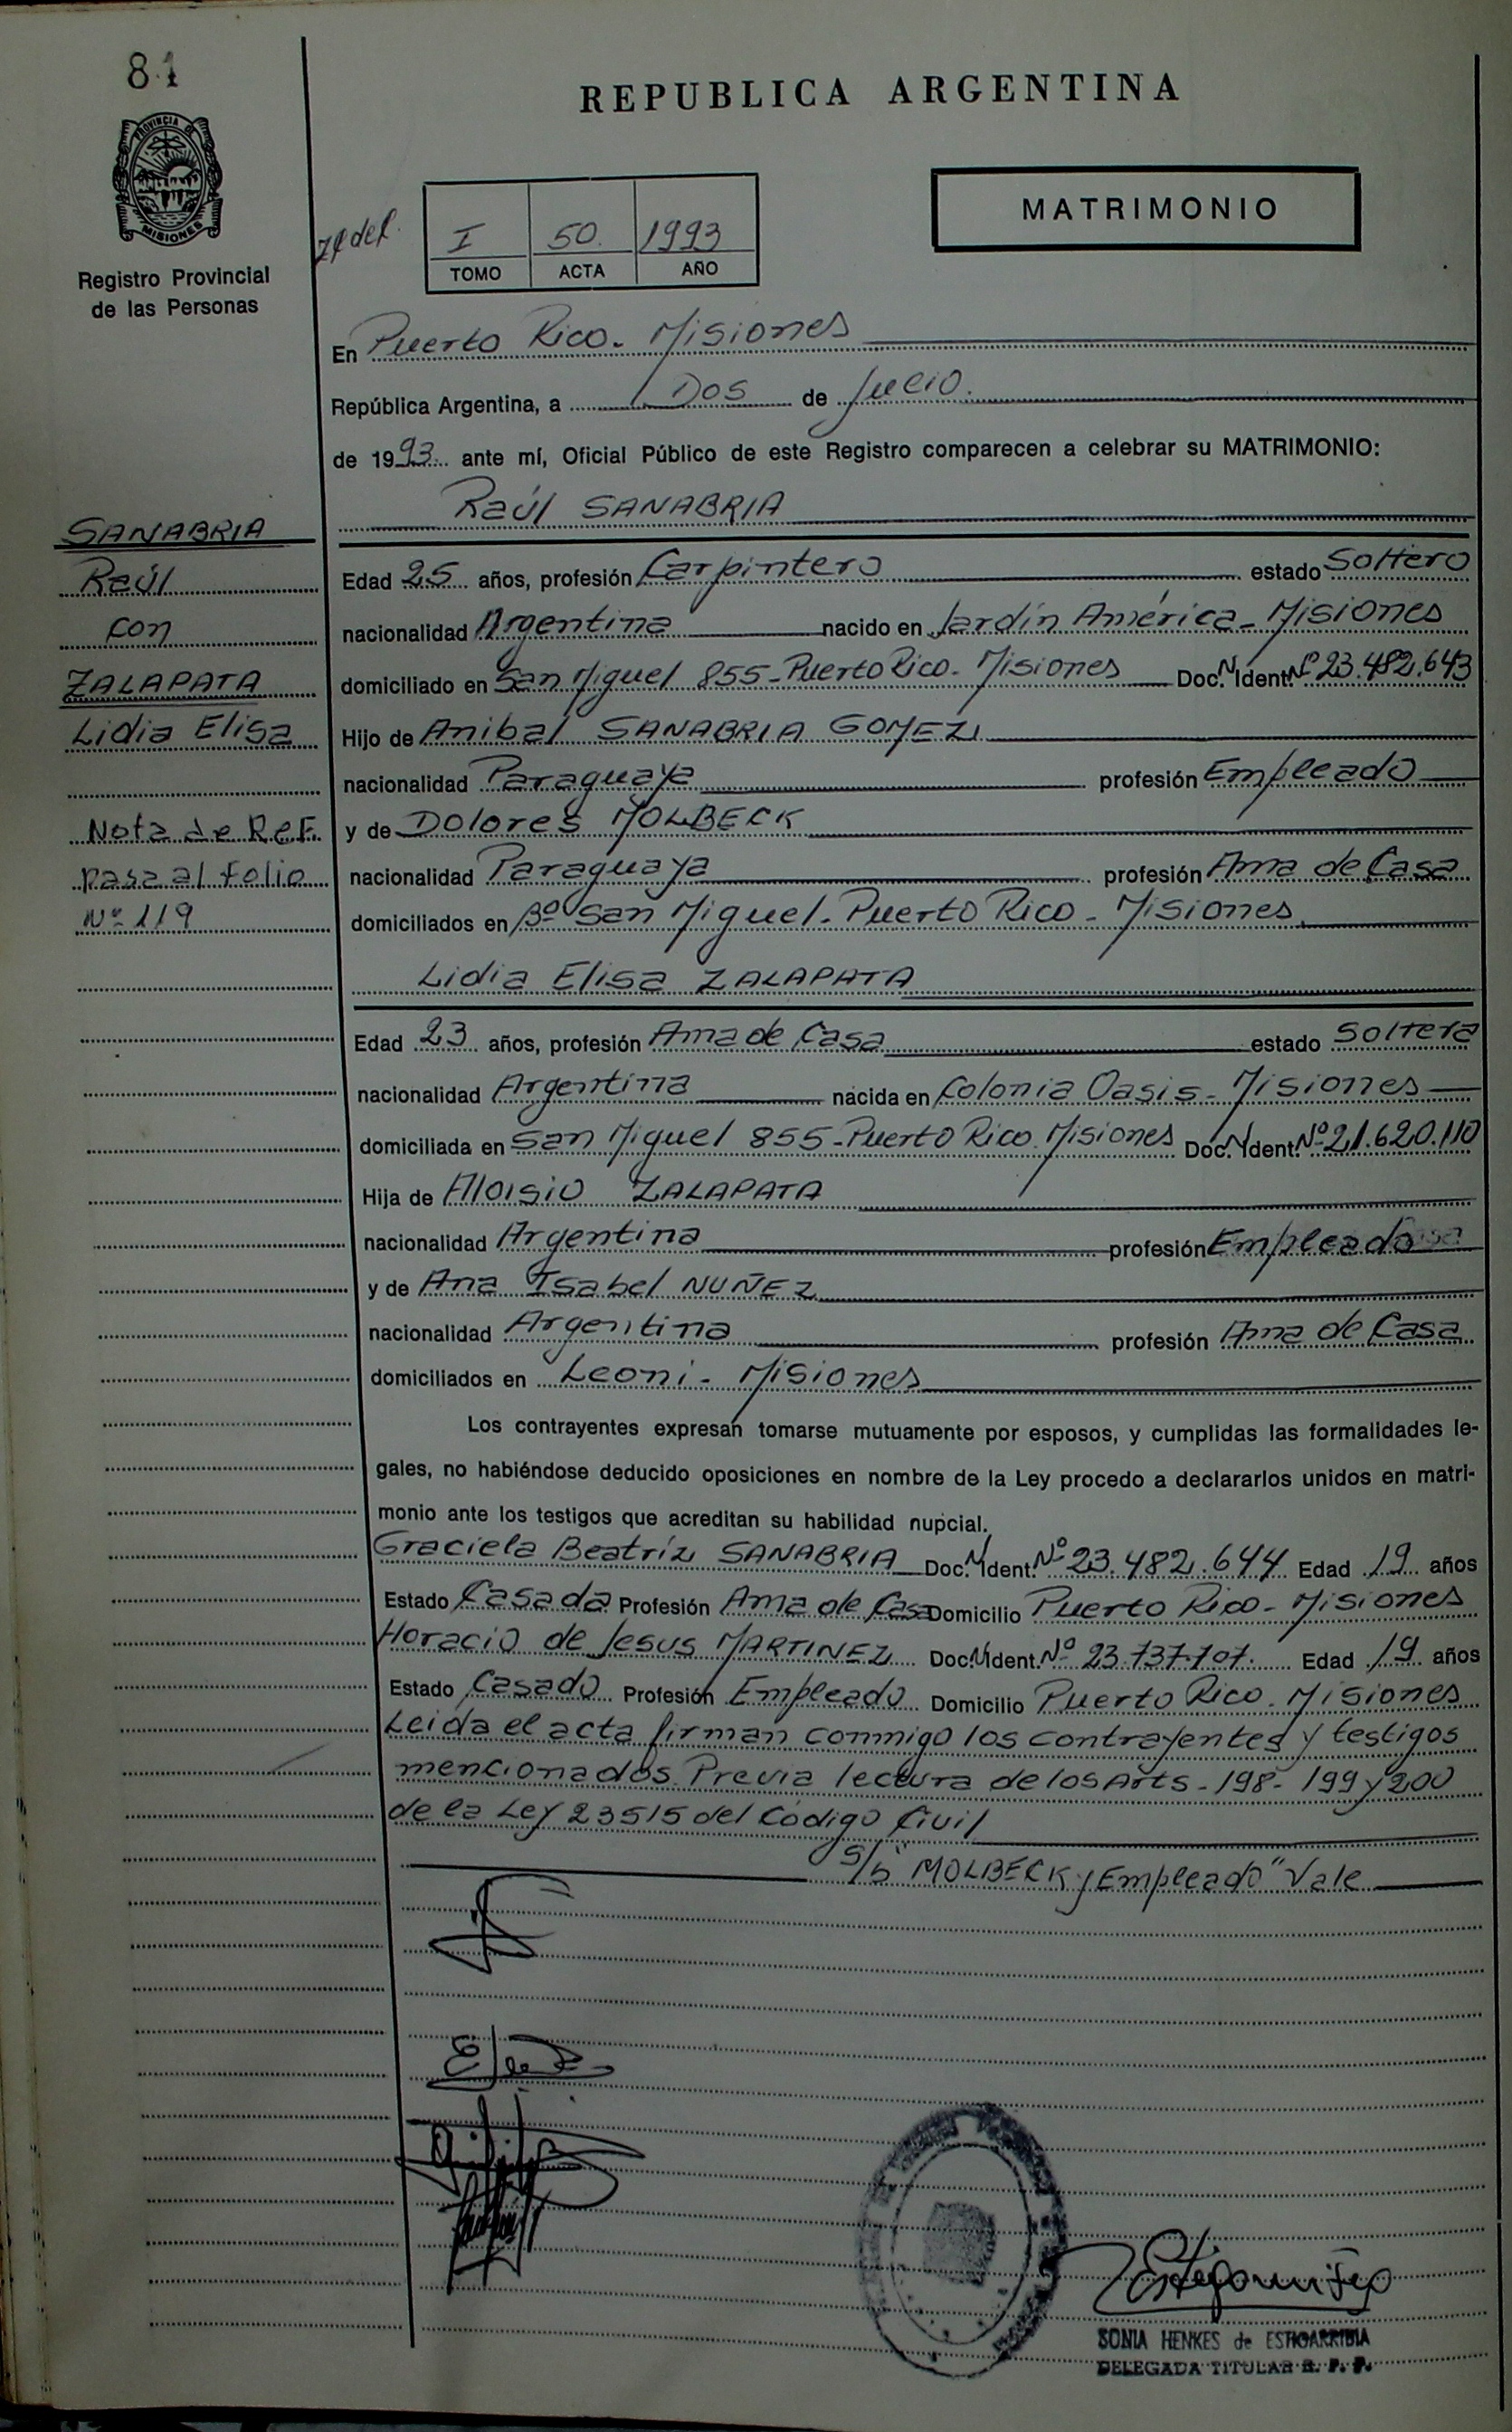 81
REPUBLICA ARGENTINA
PROVINCIA DE
MISIONES
Registro Provincial
de las Personas
I 50. 1993
TOMO ACTA AÑO
MATRIMONIO
En Puerto Rico. Misiones
República Argentina, a Dos de Julio.
de 1993. ante mí, Oficial Público de este Registro comparecen a celebrar su MATRIMONIO:
Raúl SANABRIA
SANABRIA
Raúl
con
ZALAPATA
Lidia Elisa
Nota de Ref.
pasa al Folio
Nº 119
Edad 25 años, profesión Carpintero estado Soltero
nacionalidad Argentina nacido en Jardín América - Misiones
domiciliado en San Miguel 855 - Puerto Rico - Misiones Doc. N. Ident. Nº 23.482.643
Hijo de Anibal SANABRIA GOMEZ
nacionalidad Paraguaya profesión Empleado
y de Dolores MOLBECK
nacionalidad Paraguaya profesión Ama de Casa
domiciliados en Bº San Miguel - Puerto Rico - Misiones
Lidia Elisa ZALAPATA
Edad 23 años, profesión Ama de Casa estado Soltera
nacionalidad Argentina nacida en Colonia Oasis - Misiones
domiciliada en San Miguel 855 - Puerto Rico. Misiones Doc. N. Ident. Nº 21.620.110
Hija de Aloisio ZALAPATA
nacionalidad Argentina profesión Empleado
y de Ana Isabel NUÑEZ
nacionalidad Argentina profesión Ama de Casa
domiciliados en Leoni - Misiones
Los contrayentes expresan tomarse mutuamente por esposos, y cumplidas las formalidades le-
gales, no habiéndose deducido oposiciones en nombre de la Ley procedo a declararlos unidos en matri-
monio ante los testigos que acreditan su habilidad nupcial.
Graciela Beatríz SANABRIA Doc. N. Ident. Nº 23.482.644 Edad 19 años
Estado Casada Profesión Ama de Casa Domicilio Puerto Rico - Misiones
Horacio de Jesus MARTINEZ Doc. N. Ident. Nº 23.737.707. Edad 19 años
Estado Casado Profesión Empleado Domicilio Puerto Rico. Misiones
Leida el acta firman conmigo los contrayentes y testigos
mencionados. Previa lectura de los Arts - 198 - 199 y 200
de la Ley 23515 del Código Civil
S/b "MOLBECK y Empleado" Vale
SONIA HENKES de ESTIGARRIBIA
DELEGADA TITULAR R. P. P.